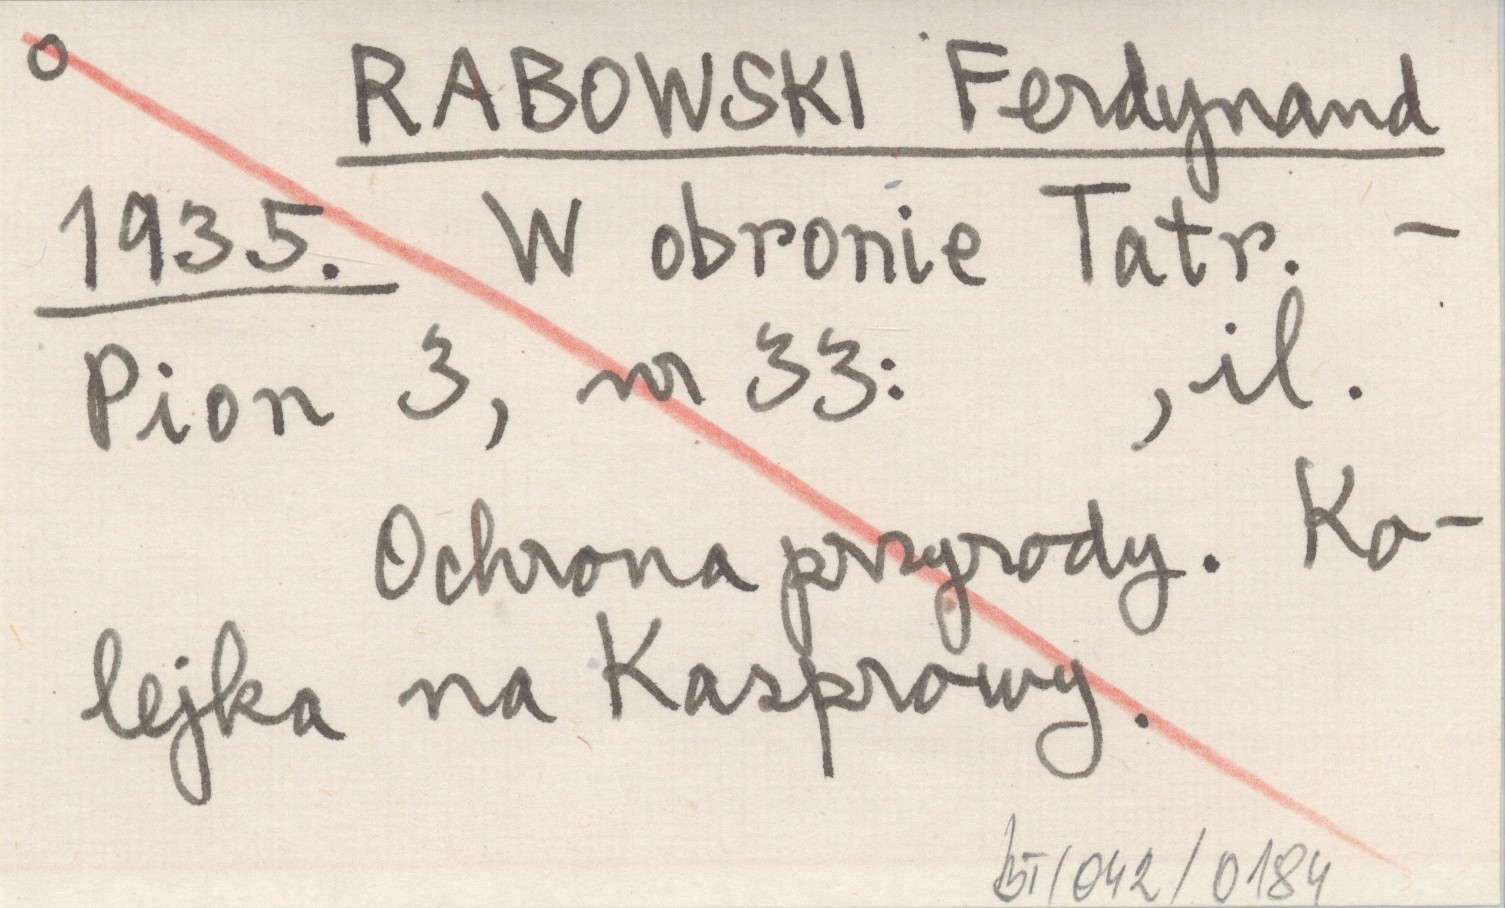 o RABOWSKI Ferdynand
1935. W obronie Tatr. –
Pion 3, nr 33: , il.
Ochrona przyrody. Ko-
lejka na Kasprowy.
bT/042/0184